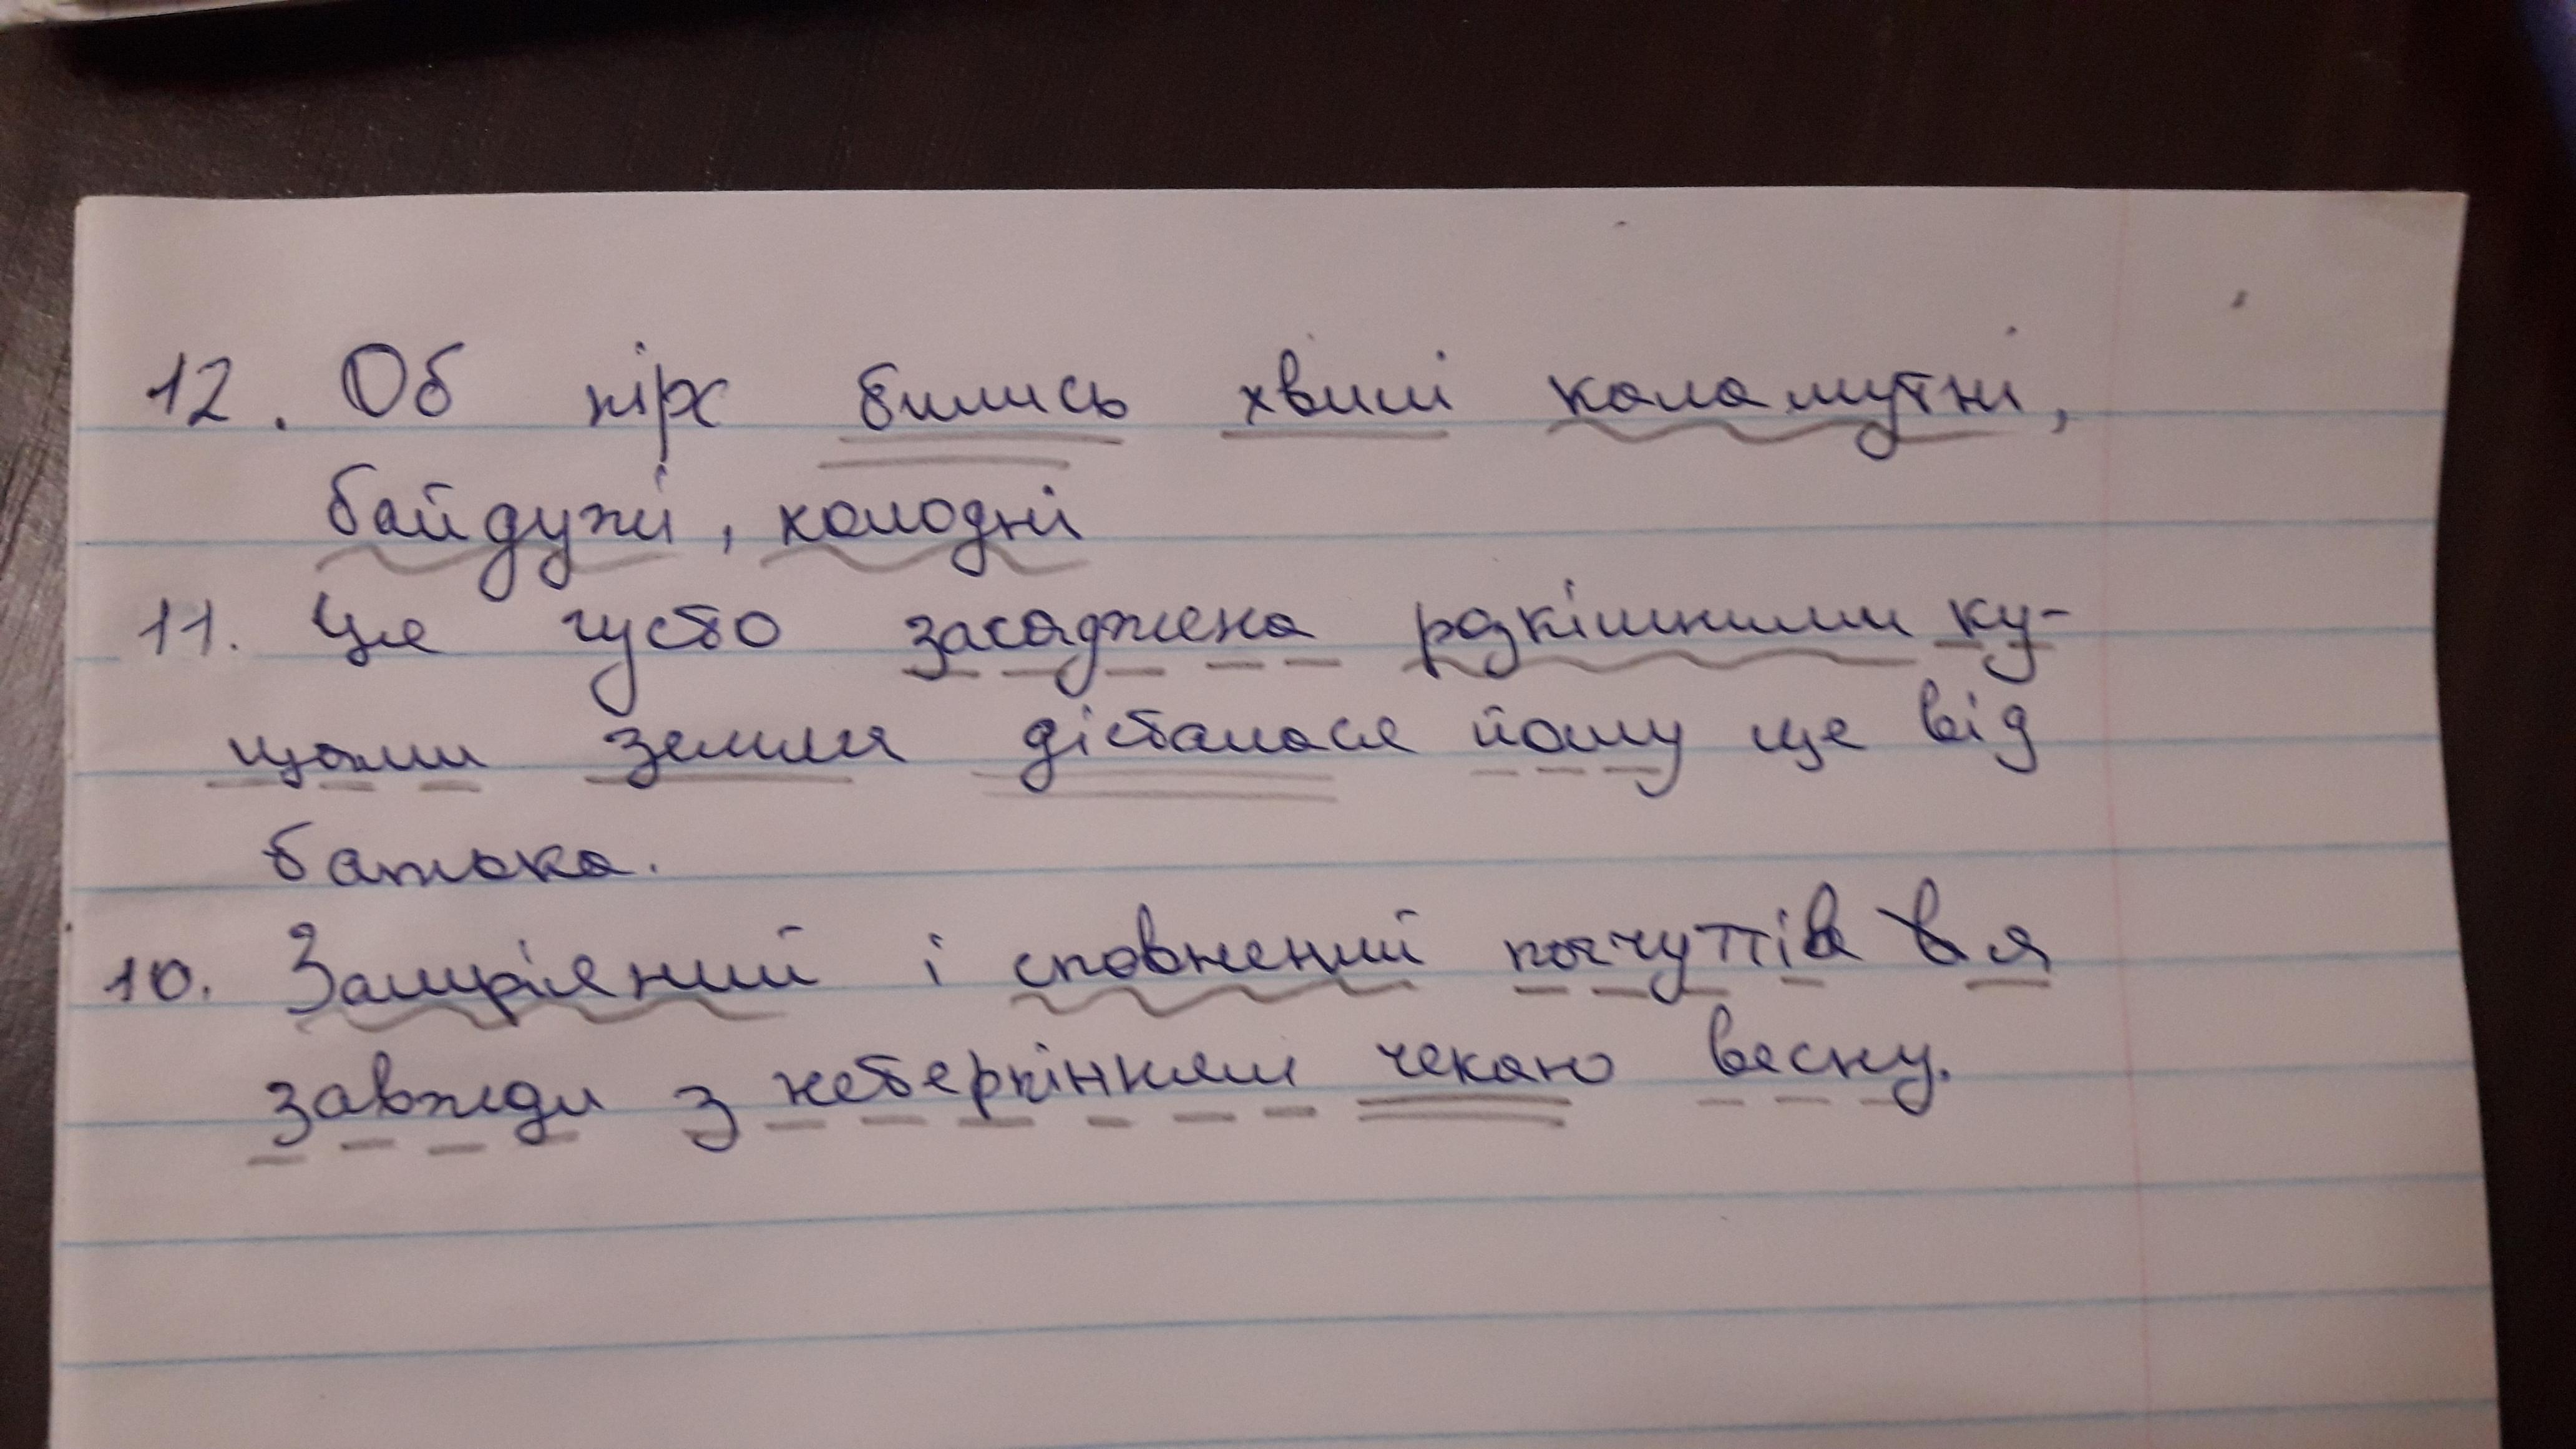 12. Об пірх бились хвилі каламутні,
байдужі, холодні
11. Ця густо засаджена розкішними ку-
щами земля дісталася йому ще від
батька.
10. Замріяний і сповнений почуттів я
завжди з нетерпінням чекаю весну.